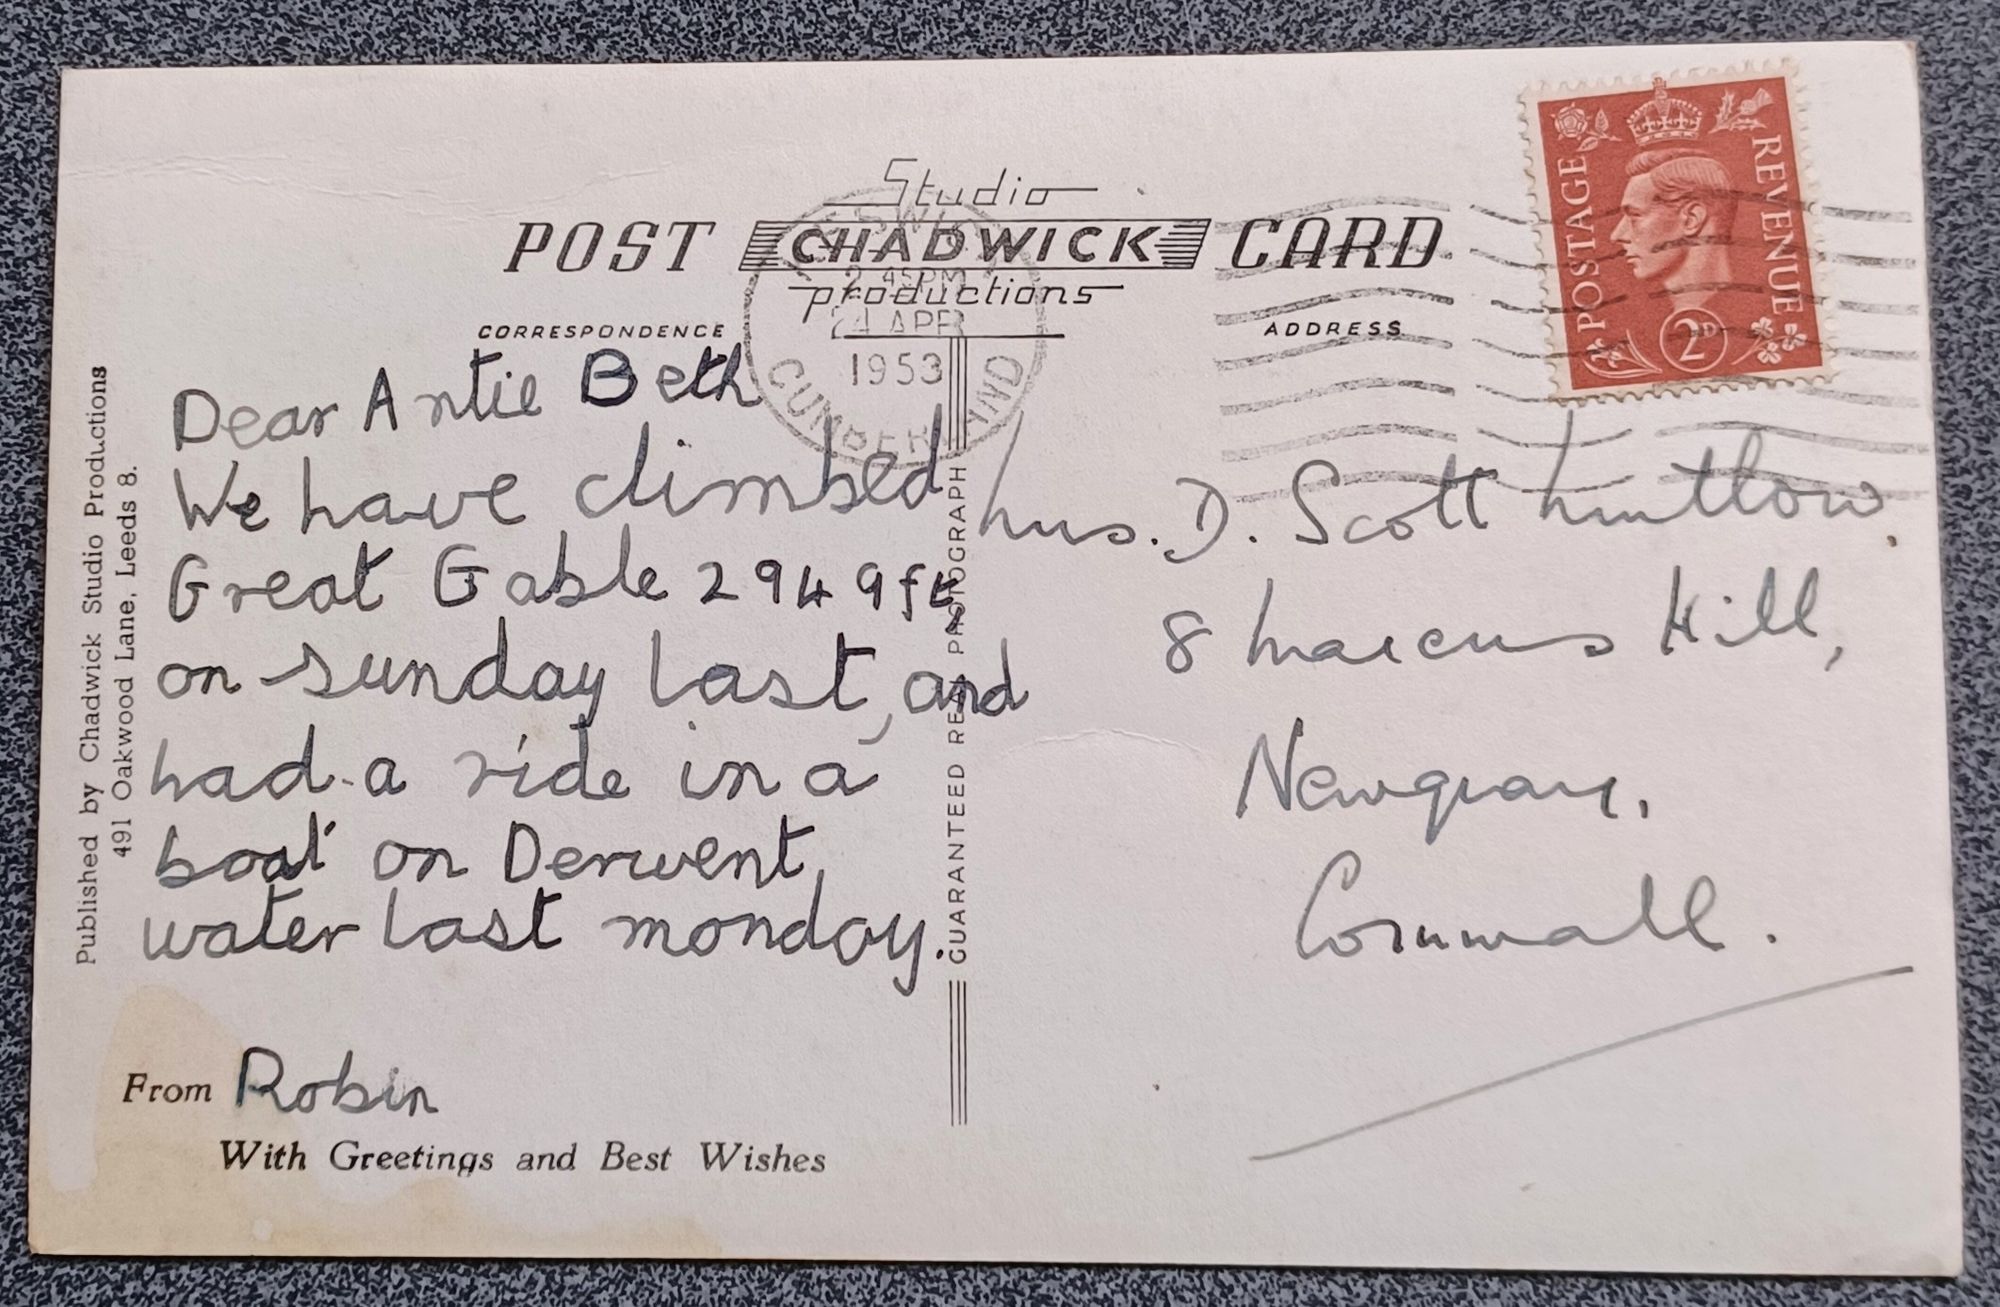 Studio
POST CHADWICK CARD
productions
CORRESPONDENCE
ADDRESS
2 45PM
24 APR
1953
CUMBERLAND
POSTAGE
REVENUE
2D
Dear Antie Beth
We have climbed
Great Gable 2949ft,
on sunday last, and
had a ride in a
boat on Derwent
water last monday.
From Robin
With Greetings and Best Wishes
Published by Chadwick Studio Productions
491 Oakwood Lane, Leeds 8.
GUARANTEED REAL PHOTOGRAPH
Mrs. D. Scott
8 Marcus Hill,
Newquay,
Cornwall.